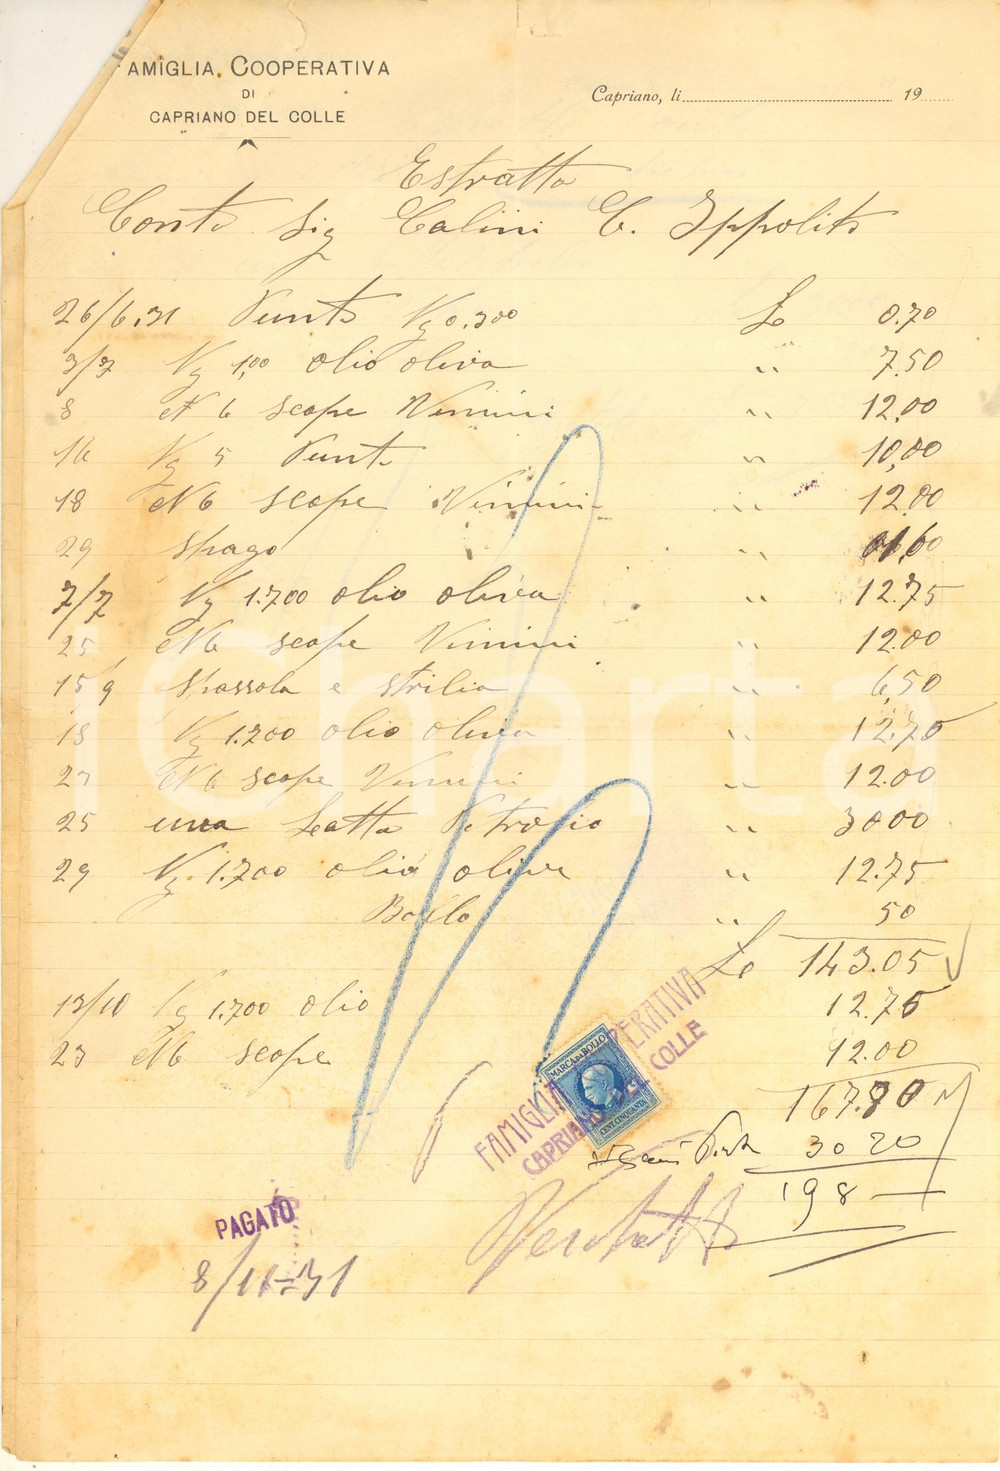 FAMIGLIA COOPERATIVA
DI
CAPRIANO DEL COLLE
Capriano, li 19
Estratto
Conto Sig Calini C. Ippolito
26/6.31 Punte Kg 0.300 L 0.70
3/7 Kg 1,00 olio oliva " 7.50
8 N 6 scope Vimini " 12,00
16 Kg 5 Punte " 10,00
18 N 6 scope Vimini " 12,00
29 spago "
7/7 Kg 1.700 olio oliva " 12.75
25 N 6 scope Vimini " 12.00
15 9 spassola e strilia " 6,50
18 Kg 1.700 olio oliva " 12.75
27 N 6 scope Vimini " 12.00
25 una Petrolio " 30 00
29 Kg 1.700 olio oliva " 12.75
Bollo " 50
L 143.05
13/10 Kg 1.700 olio 12.75
23 N 6 scope 12.00
167.80
30 20
198
MARCA DA BOLLO
CENT. CINQUANTA
FAMIGLIA COOPERATIVA
CAPRIANO DEL COLLE
PAGATO
8/11-31
iCharta